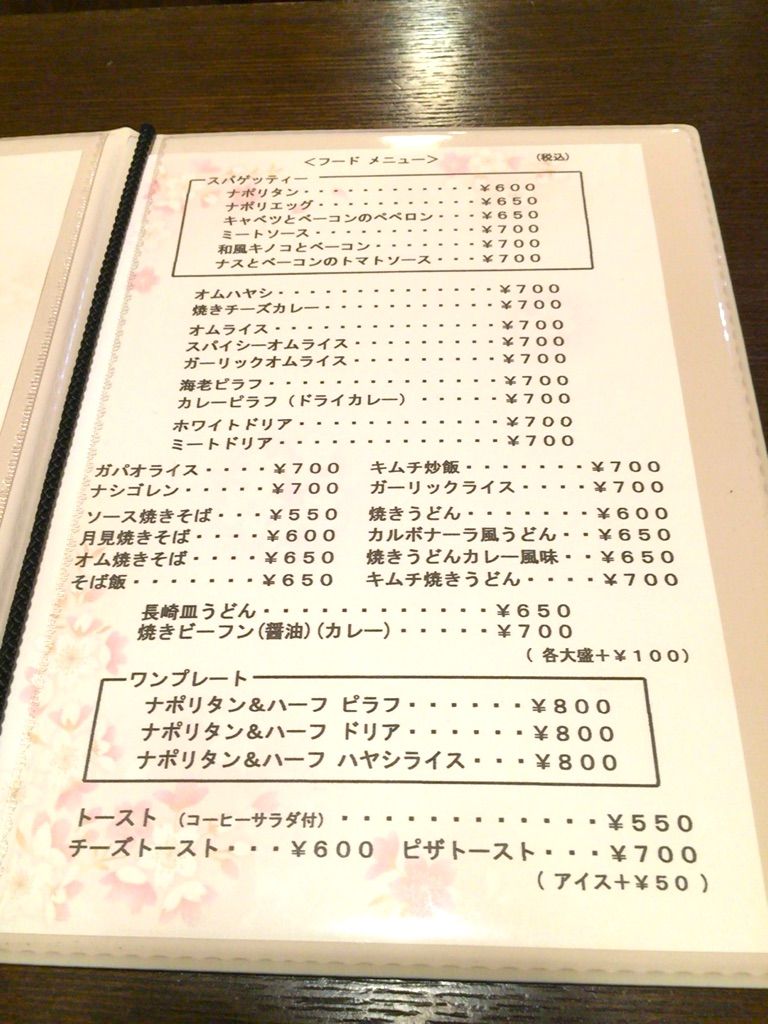 ＜フード メニュー＞ (税込)
スパゲッティー
ナポリタン・・・・・・・・・・・・￥６００
ナポリエッグ・・・・・・・・・・・￥６５０
キャベツとベーコンのペペロン・・・￥６５０
ミートソース・・・・・・・・・・・￥７００
和風キノコとベーコン・・・・・・・￥７００
ナスとベーコンのトマトソース・・・￥７００
オムハヤシ・・・・・・・・・・・・・・￥７００
焼きチーズカレー・・・・・・・・・・・￥７００
オムライス・・・・・・・・・・・・・・￥７００
スパイシーオムライス・・・・・・・・・￥７００
ガーリックオムライス・・・・・・・・・￥７００
海老ピラフ・・・・・・・・・・・・・・￥７００
カレーピラフ（ドライカレー）・・・・・￥７００
ホワイトドリア・・・・・・・・・・・・￥７００
ミートドリア・・・・・・・・・・・・・￥７００
ガパオライス・・・・￥７００ キムチ炒飯・・・・・・・￥７００
ナシゴレン・・・・・￥７００ ガーリックライス・・・・￥７００
ソース焼きそば・・・￥５５０ 焼きうどん・・・・・・・￥６００
月見焼きそば・・・・￥６００ カルボナーラ風うどん・・￥６５０
オム焼きそば・・・・￥６５０ 焼きうどんカレー風味・・￥６５０
そば飯・・・・・・・￥６５０ キムチ焼きうどん・・・・￥７００
長崎皿うどん・・・・・・・・・・・・￥６５０
焼きビーフン(醤油)(カレー)・・・・・￥７００
( 各大盛＋￥１００)
ワンプレート
ナポリタン＆ハーフ ピラフ・・・・・・￥８００
ナポリタン＆ハーフ ドリア・・・・・・￥８００
ナポリタン＆ハーフ ハヤシライス・・・￥８００
トースト （コーヒーサラダ付）・・・・・・・・・・・・￥５５０
チーズトースト・・・￥６００ ピザトースト・・・￥７００
( アイス＋￥５０ )